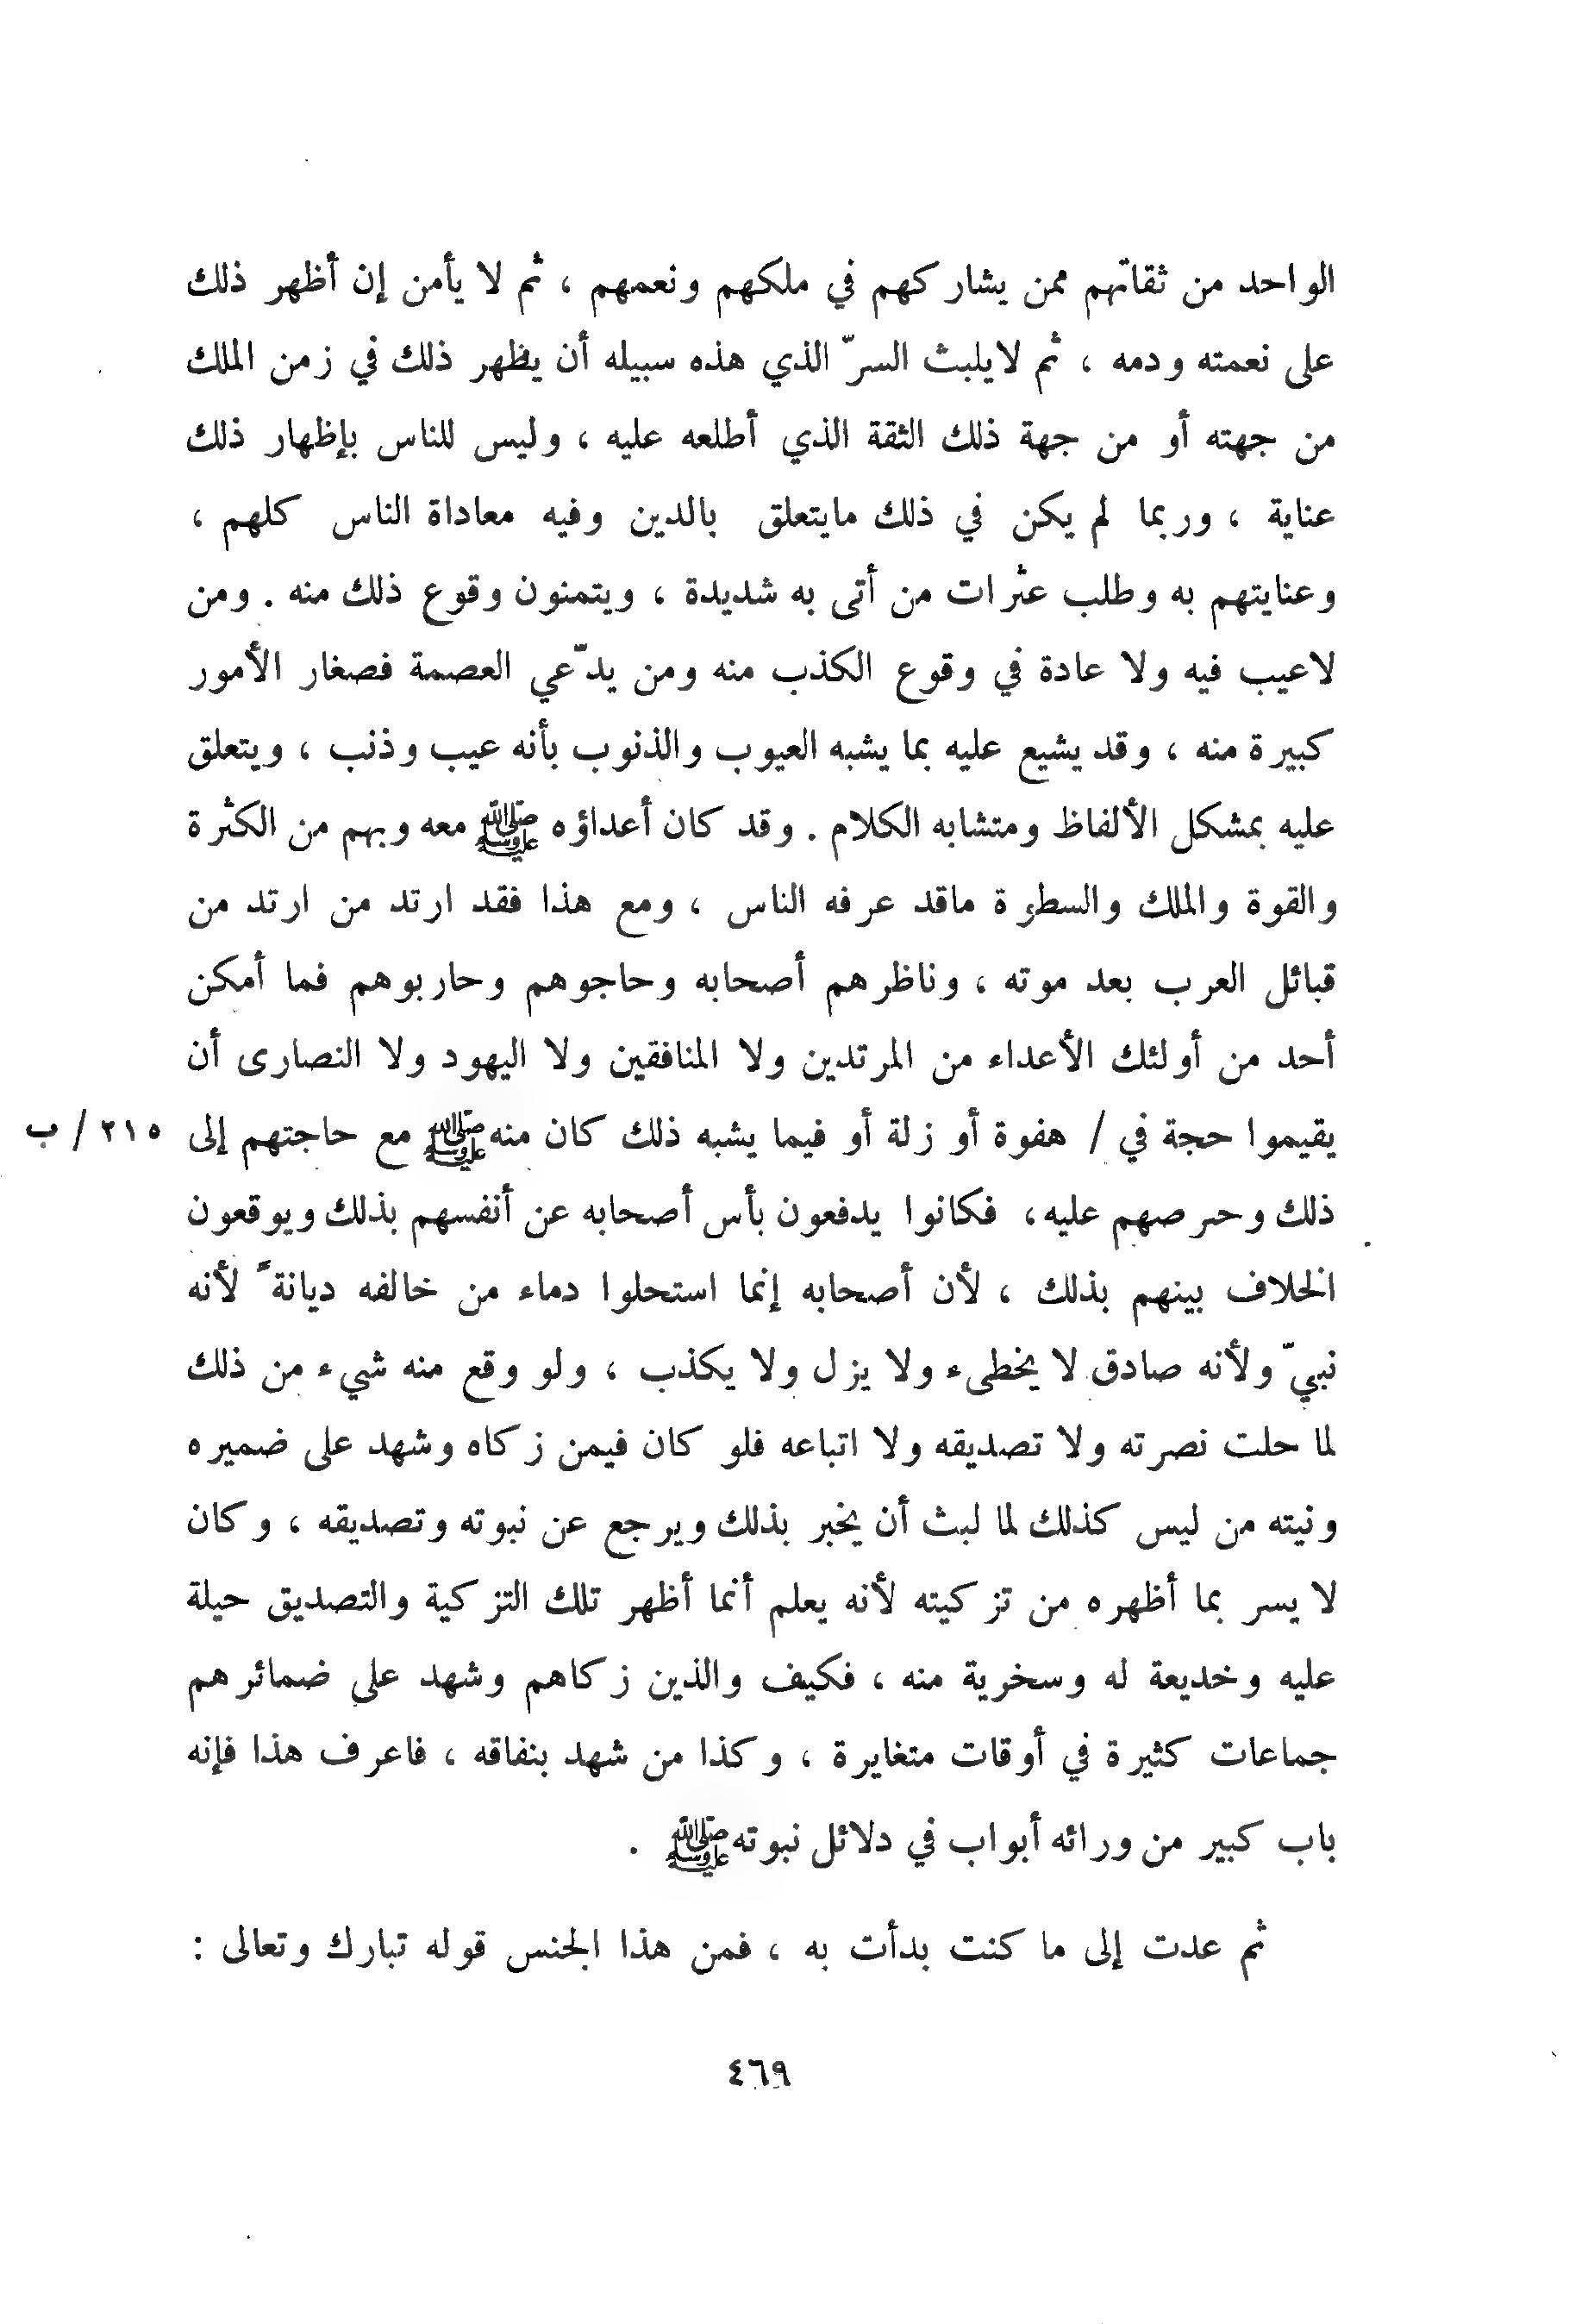 الواحد من ثقاتهم ممن يشاركهم في ملكهم ونعمهم ، ثم لا يأمن إن أظهر ذلك
على نعمته ودمه ، ثم لايلبث السرّ الذي هذه سبيله أن يظهر ذلك في زمن الملك
من جهته أو من جهة ذلك الثقة الذي أطلعه عليه ، وليس للناس بإظهار ذلك
عناية ، وربما لم يكن في ذلك مايتعلق بالدين وفيه معاداة الناس كلهم ،
وعنايتهم به وطلب عثرات من أتى به شديدة ، ويتمنون وقوع ذلك منه . ومن
لاعيب فيه ولا عادة في وقوع الكذب منه ومن يدّعي العصمة فصغار الأمور
كبيرة منه ، وقد يشيع عليه بما يشبه العيوب والذنوب بأنه عيب وذنب ، ويتعلق
عليه بمشكل الألفاظ ومتشابه الكلام . وقد كان أعداؤه ﷺ معه وبهم من الكثرة
والقوة والملك والسطوة ماقد عرفه الناس ، ومع هذا فقد ارتد من ارتد من
قبائل العرب بعد موته ، وناظرهم أصحابه وحاجوهم وحاربوهم فما أمكن
أحد من أولئك الأعداء من المرتدين ولا المنافقين ولا اليهود ولا النصارى أن
يقيموا حجة في / هفوة أو زلة أو فيما يشبه ذلك كان منه ﷺ مع حاجتهم إلى ٢١٥ / ب
ذلك وحرصهم عليه ، فكانوا يدفعون بأس أصحابه عن أنفسهم بذلك ويوقعون
الخلاف بينهم بذلك ، لأن أصحابه إنما استحلوا دماء من خالفه ديانةً لأنه
نبيّ ولأنه صادق لا يخطىء ولا يزل ولا يكذب ، ولو وقع منه شيء من ذلك
لما حلت نصرته ولا تصديقه ولا اتباعه فلو كان فيمن زكاه وشهد على ضميره
ونيته من ليس كذلك لما لبث أن يخبر بذلك ويرجع عن نبوته وتصديقه ، وكان
لا يسر بما أظهره من تزكيته لأنه يعلم أنما أظهر تلك التزكية والتصديق حيلة
عليه وخديعة له وسخرية منه ، فكيف والذين زكاهم وشهد على ضمائرهم
جماعات كثيرة في أوقات متغايرة ، وكذا من شهد بنفاقه ، فاعرف هذا فإنه
باب كبير من ورائه أبواب في دلائل نبوته ﷺ .
ثم عدت إلى ما كنت بدأت به ، فمن هذا الجنس قوله تبارك وتعالى :
٤٦٩